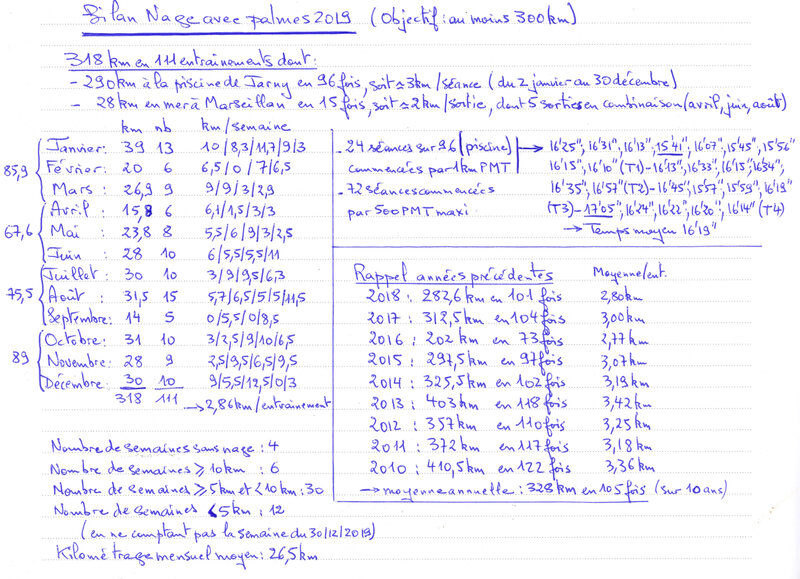 Bilan Nage avec palmes 2019 (Objectif : au moins 300km)
318 km en 111 entraînements dont :
- 290km à la piscine de Jarny en 96 fois, soit ≃ 3km/séance (du 2 janvier au 30 décembre)
- 28km en mer à Marseillan en 15 fois, soit ≃ 2km/sortie, dont 5 sorties en combinaison (avril, juin, août)
km nb km/semaine
85,9
Janvier : 39 13 10/8,3/11,7/9/3
Février : 20 6 6,5/0/7/6,5
Mars : 26,9 9 9/9/3/2,9
67,6
Avril : 15,8 6 6,1/1,5/3/3
Mai : 23,8 8 5,5/6/9/3/2,5
Juin : 28 10 6/5,5/5,5/11
75,5
Juillet : 30 10 3/9/9,5/6,3
Août : 31,5 15 5,7/6,5/5/5/11,5
Septembre : 14 5 0/5,5/0/8,5
89
Octobre : 31 10 3/2,5/9/10/6,5
Novembre : 28 9 2,5/9,5/6,5/9,5
Décembre : 30 10 9/5,5/12,5/0/3
318 111
→ 2,86km/entraînement
Nombre de semaines sans nage : 4
Nombre de semaines ⩾ 10km : 6
Nombre de semaines ⩾ 5km et < 10km : 30
Nombre de semaines < 5km : 12
(en ne comptant pas la semaine du 30/12/2019)
Kilométrage mensuel moyen : 26,5km
- 24 séances sur 96 (piscine)
commencées par 1km PMT
- 72 séances commencées
par 500 PMT maxi
→ 16'25", 16'31", 16'13", 15'41", 16'07", 15'45", 15'56"
16'15", 16'10" (T1) - 16'13", 16'33", 16'15", 16'34",
16'35", 16'57" (T2) - 16'45", 15'57", 15'59", 16'19"
(T3) - 17'05", 16'24", 16'22", 16'20", 16'14" (T4)
→ Temps moyen 16'19"
Rappel années précédentes Moyenne/ent.
2018 : 282,6km en 101 fois 2,80km
2017 : 312,5km en 104 fois 3,00km
2016 : 202 km en 73 fois 2,77km
2015 : 297,5km en 97 fois 3,07km
2014 : 325,5km en 102 fois 3,19km
2013 : 403km en 118 fois 3,42km
2012 : 357km en 110 fois 3,25km
2011 : 372km en 117 fois 3,18km
2010 : 410,5km en 122 fois 3,36km
→ moyenne annuelle : 328km en 105 fois (sur 10 ans)